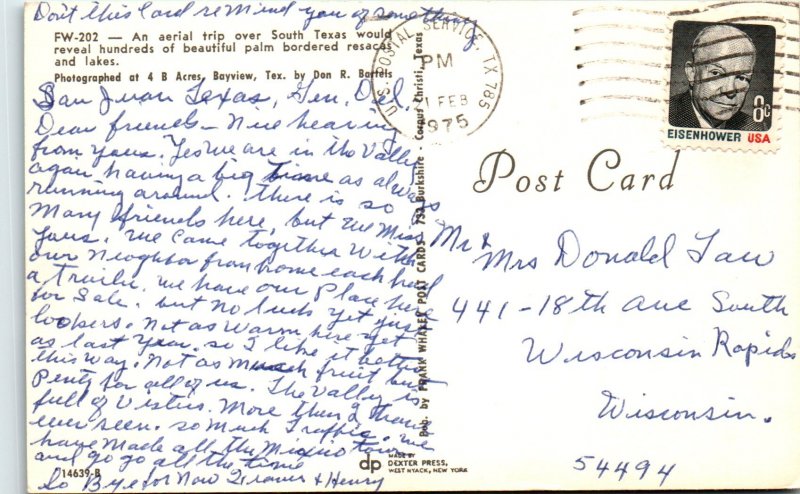 Don't this Card remind you of something
FW-202 — An aerial trip over South Texas would
reveal hundreds of beautiful palm bordered resacas
and lakes.
Photographed at 4 B Acres, Bayview, Tex. by Don R. Bartels
San Juan Texas, Gen. Del.
Dear friends – Nice hearing
from youse. Yes we are in the Valley
again having a big time as always
running around. there is so
Many friends here, but we Miss
youse. We came together with
our Neighbor from home each had
a trailer. we have our place here
for Sale. but No luck yet just
lookers. Not as warm here yet
as last year. so I like it better
this way. Not as much fruit but
Plenty for all of us. The Valley is
full of More than I have
ever seen. so much traffic. we
have Made all the Mexico towns
and go go all the time
So Bye for Now & Henry
14639-B
Pub. by FRANK WHALEY POST CARDS — 732 Burkshire - Corpus Christi, Texas
dp
MADE BY
DEXTER PRESS,
WEST NYACK, NEW YORK
U.S. POSTAL SERVICE, TX 785
PM
1 FEB
1975
8c
EISENHOWER USA
Post Card
Mr & Mrs Donald
441-18th Ave South
Wisconsin Rapids
Wisconsin.
54494